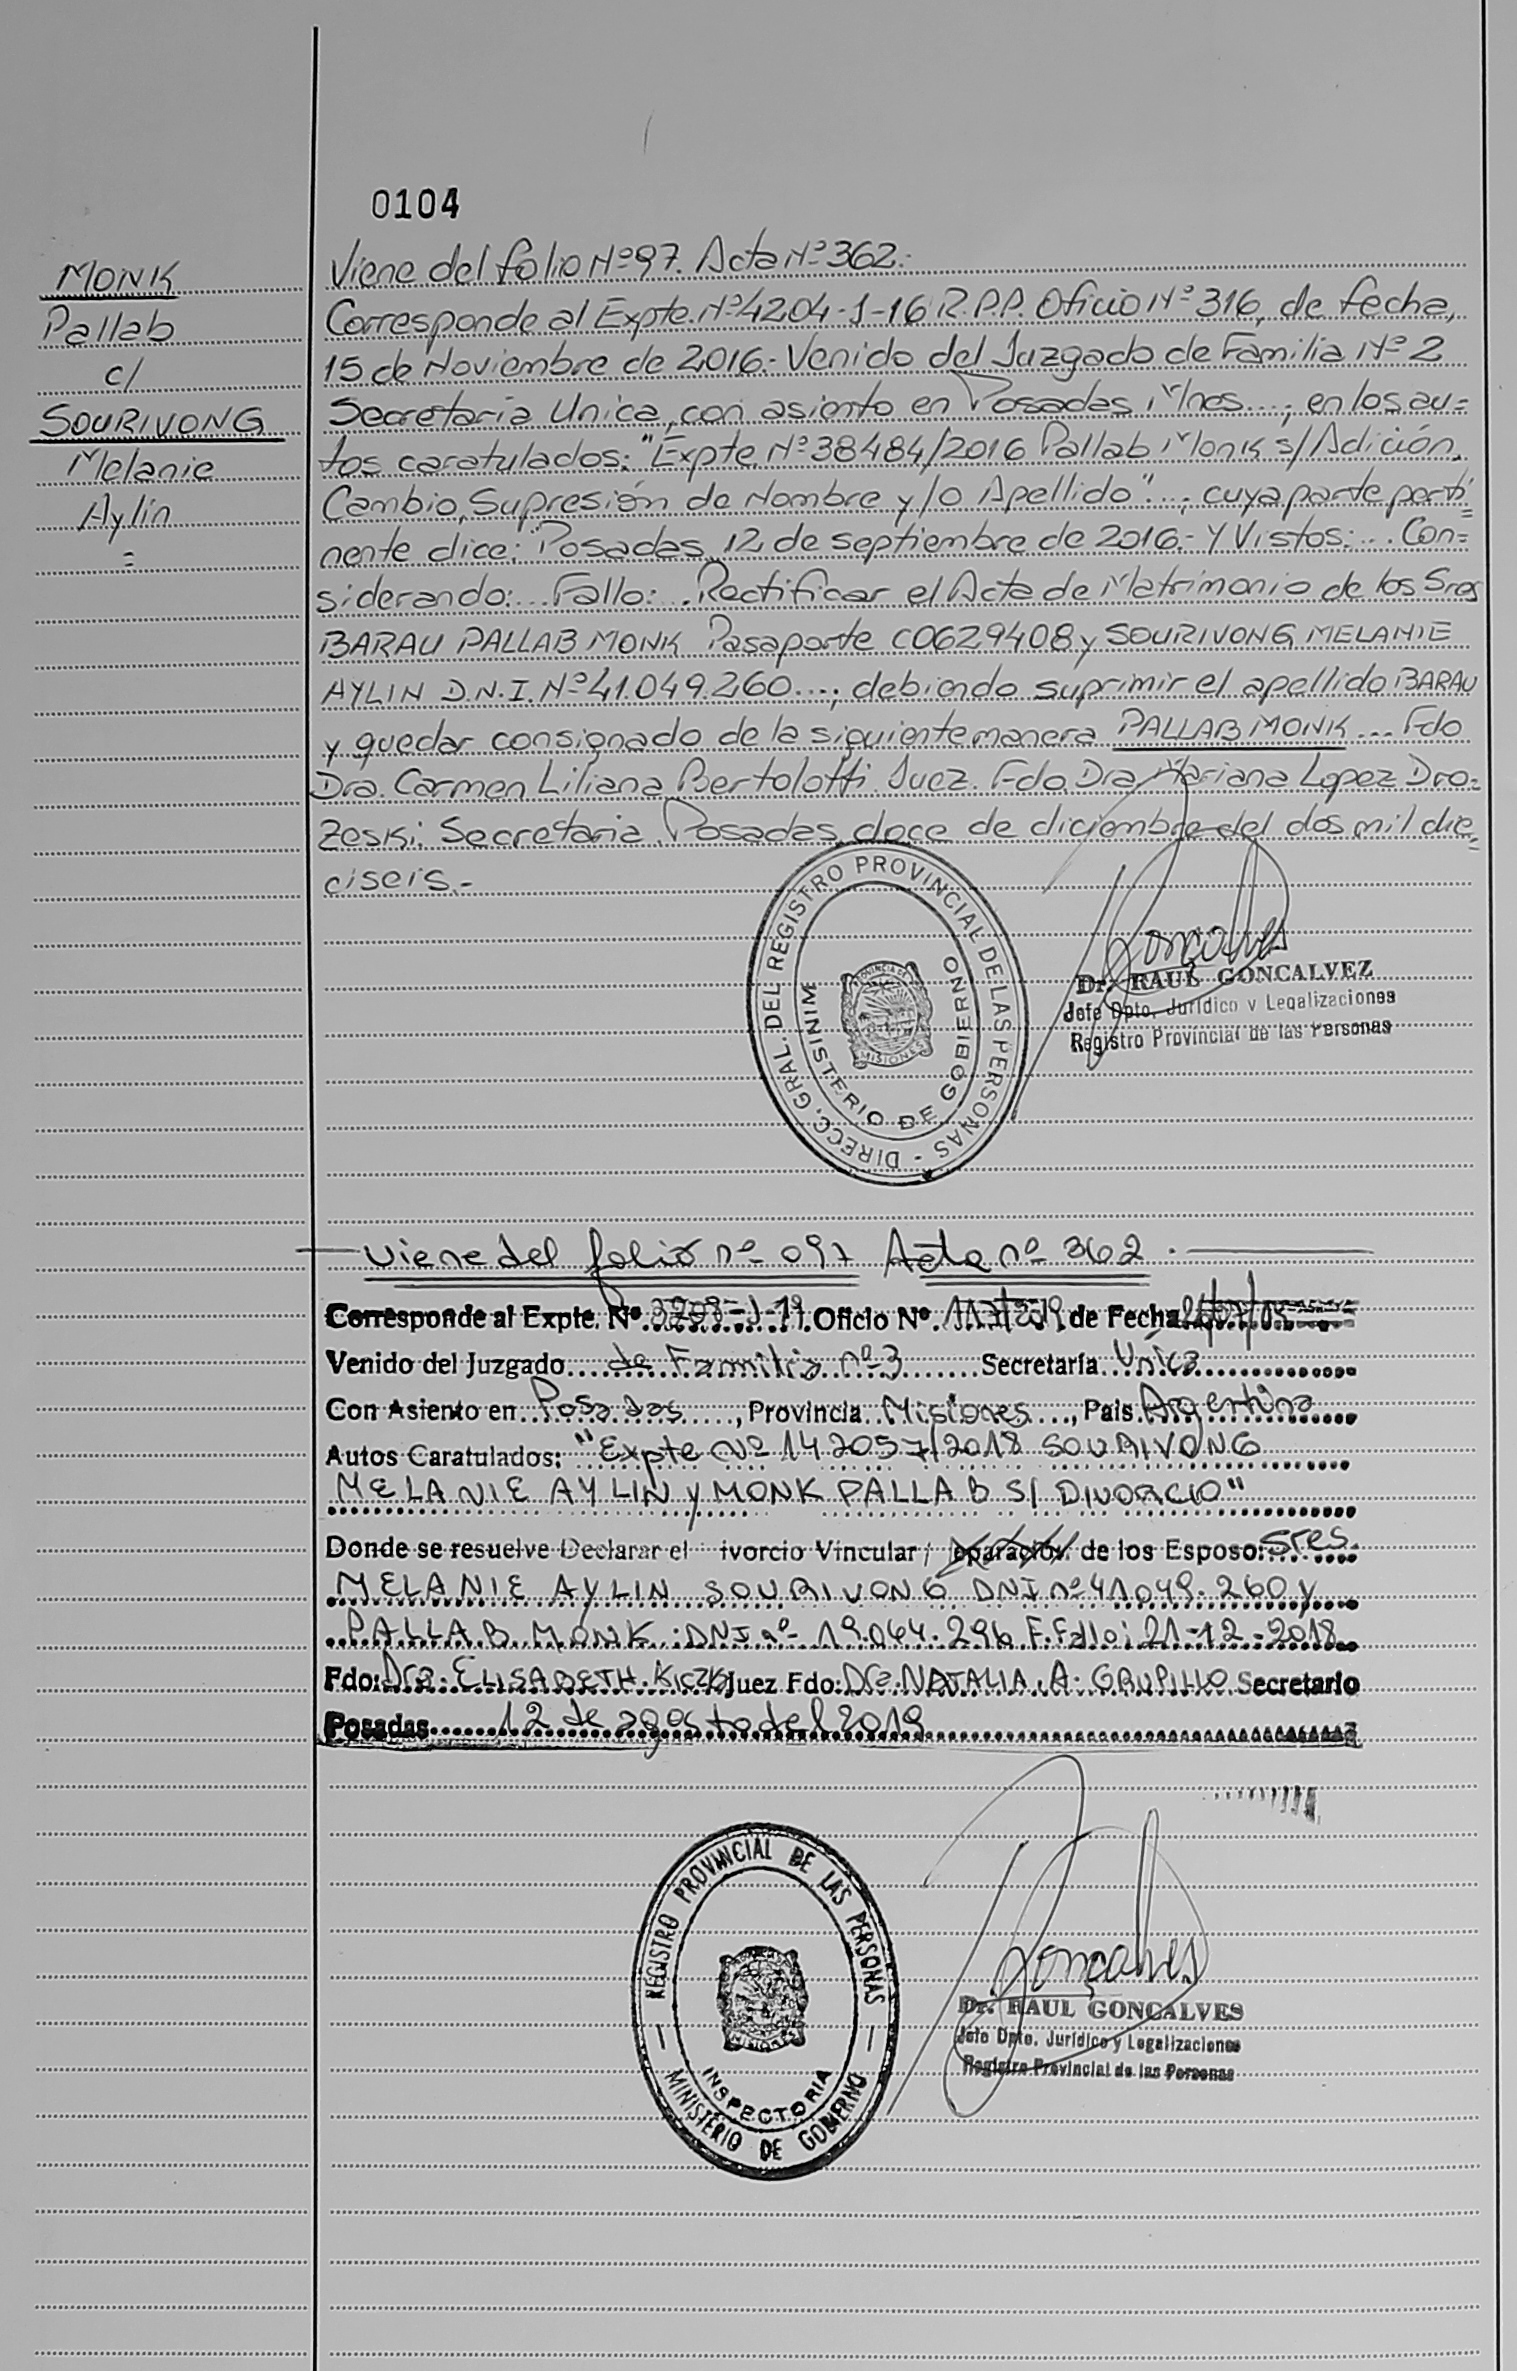 0104
MONK
Pallab
c/
SOURIVONG
Melanie
Aylín
=
Viene del folio Nº 97. Acta Nº 362.-
Corresponde al Expte. Nº 4204-J-16 R.P.P. Oficio Nº 316, de fecha,
15 de Noviembre de 2016.- Venido del Juzgado de Familia Nº 2
Secretaría Unica, con asiento en Posadas Mnes...; en los au=
tos caratulados: "Expte. Nº 38484/2016 Pallab Monk s/ Adición,
Cambio, Supresión de Nombre y/o Apellido"...; cuya parte perti=
nente dice: Posadas, 12 de septiembre de 2016.- Y Vistos:... Con=
siderando:... Fallo:... Rectificar el Acta de Matrimonio de los Sres
BARAU PALLAB MONK Pasaporte C0629408 y SOURIVONG MELANIE
AYLIN D.N.I. Nº 41.049.260...; debiendo suprimir el apellido BARAU
y quedar consignado de la siguiente manera PALLAB MONK... Fdo
Dra. Carmen Liliana Bertolotti Juez. Fdo Dra Mariana Lopez Dro=
zeski Secretaria. Posadas, doce de diciembre del dos mil die=
ciseis.-
DIRECC. GRAL. DEL REGISTRO PROVINCIAL DE LAS PERSONAS -
MINISTERIO DE GOBIERNO
PROVINCIA DE
MISIONES
Goncalves
Dr. RAUL GONCALVEZ
Jefe Dpto. Jurídico y Legalizaciones
Registro Provincial de las Personas
viene del folio nº 097 Acta nº 362.
Corresponde al Expte. Nº 3208-J-19 Oficio Nº 1137/2019 de Fecha
Venido del Juzgado de Familia nº 3 Secretaría Única
Con Asiento en Posadas, Provincia Misiones, Pais Argentina
Autos Caratulados: "Expte Nº 142057/2018 SOURIVONG
MELANIE AYLIN y MONK PALLAB S/ DIVORCIO"
Donde se resuelve Declarar el ivorcio Vincular / eparación de los Esposo: Sres.
MELANIE AYLIN SOURIVONG DNI nº 41.049.260 y
PALLAB MONK: DNI nº 19.044.296 F. Fallo: 21-12-2018
Fdo: Dra. ELISABETH KICZKA Juez Fdo: Dra. NATALIA. A. GRUPILLO Secretario
Posadas 12 de agosto del 2019
REGISTRO PROVINCIAL DE LAS PERSONAS
INSPECTORIA
MINISTERIO DE GOBIERNO
Goncalves
Dr. RAUL GONCALVES
Jefe Dpto. Jurídico y Legalizaciones
Registro Provincial de las Personas